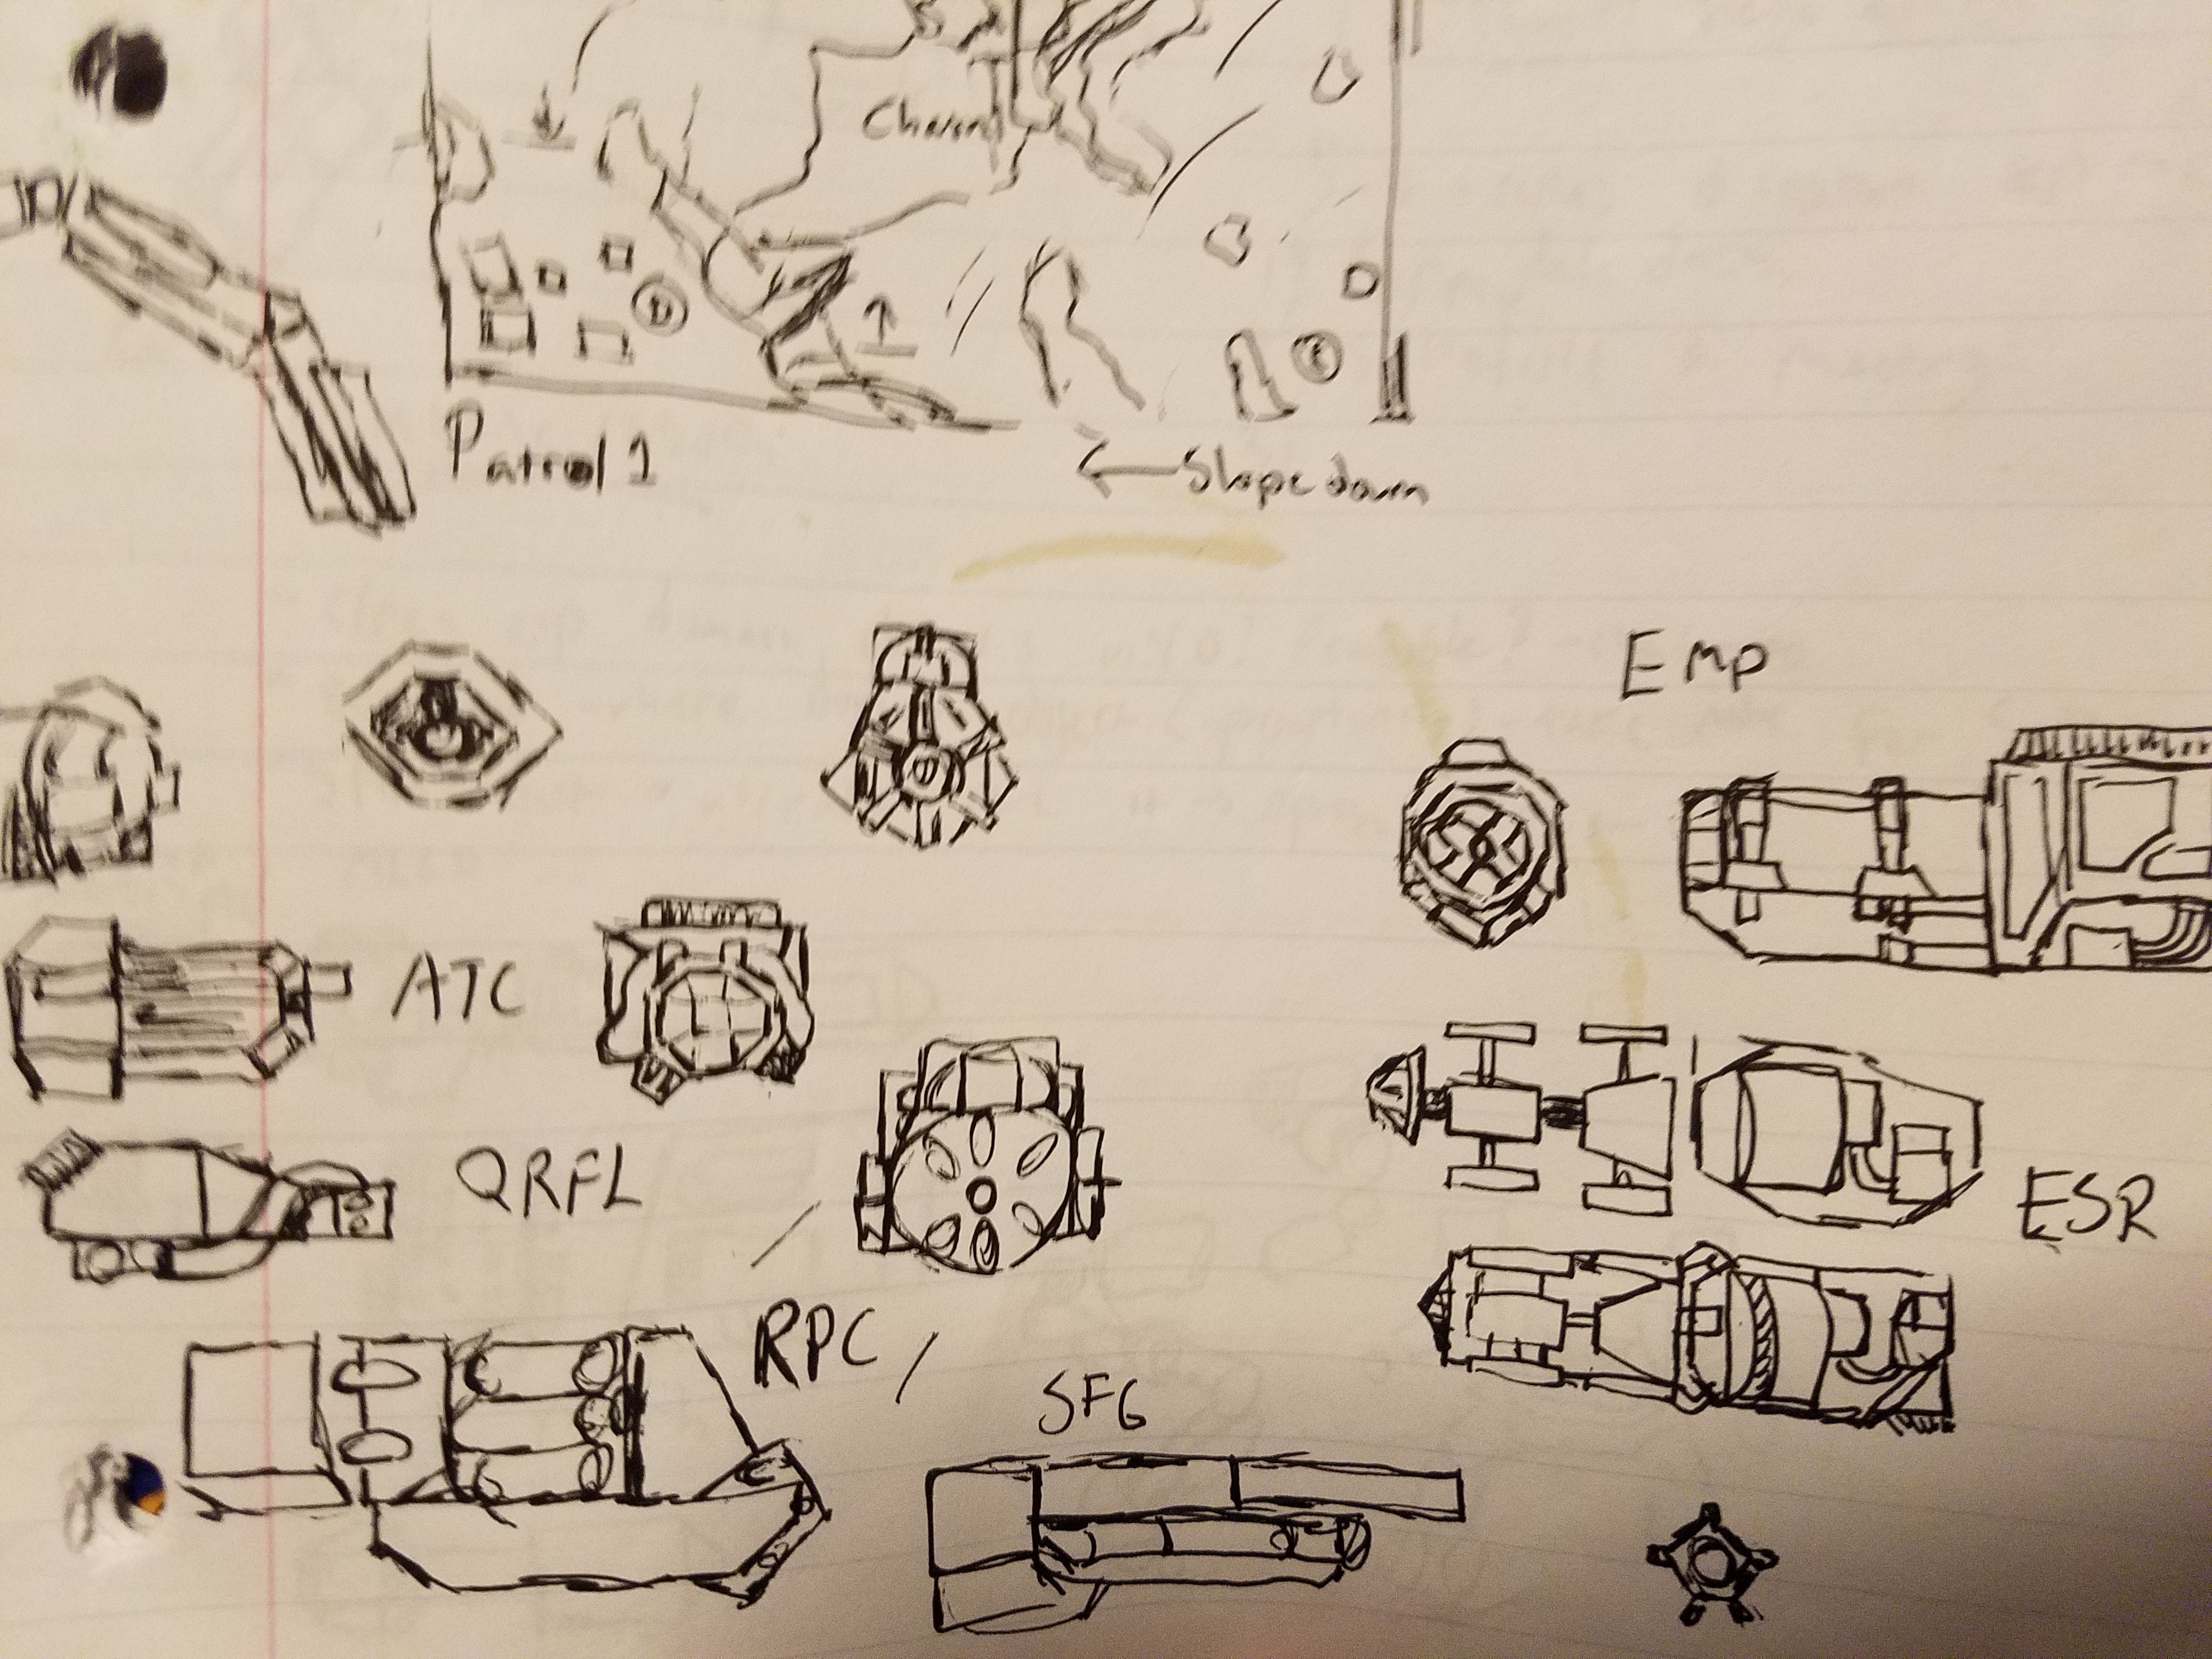 Patrol 1
← Slope down
Emp
ATC
QRFL
ESR
RPC
SFG